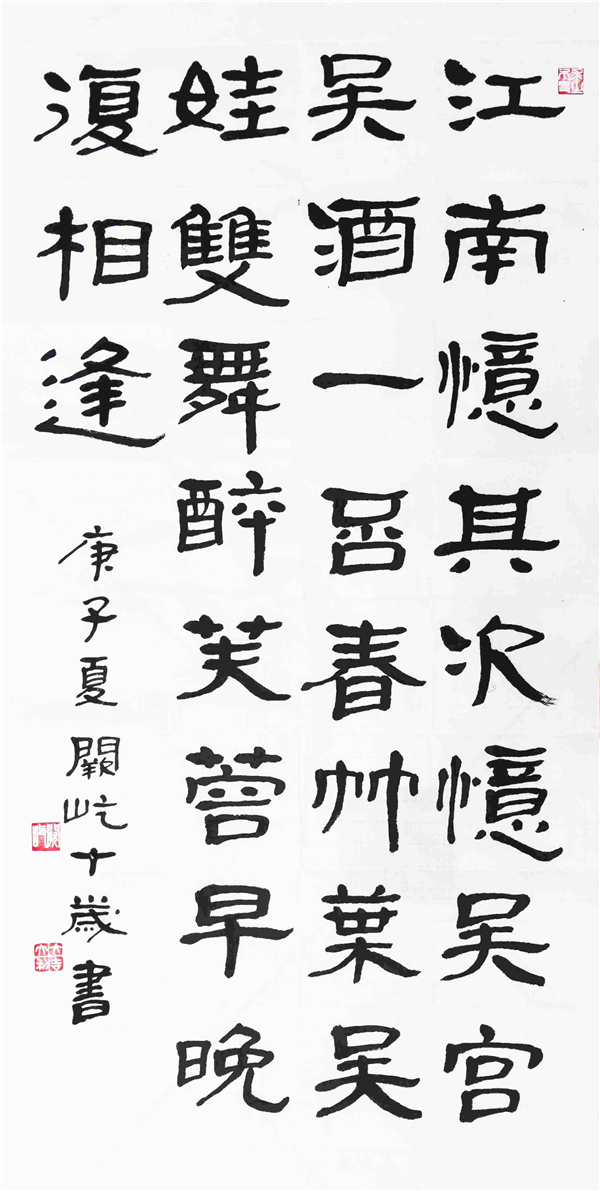 江南憶其次憶吳宮
吳酒一呂春竹葉吳
娃雙舞醉芙蓉早晚
復相逢
庚子夏闕屹十歲書